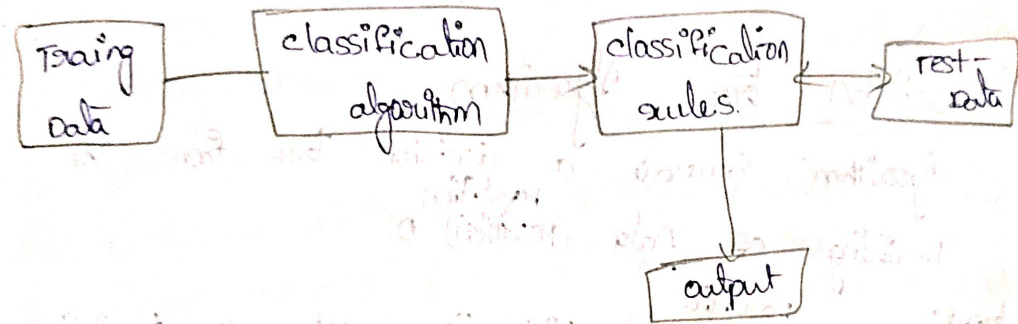 Traing
Data
classification
algorithm
classification
rules.
rest-
Data
output